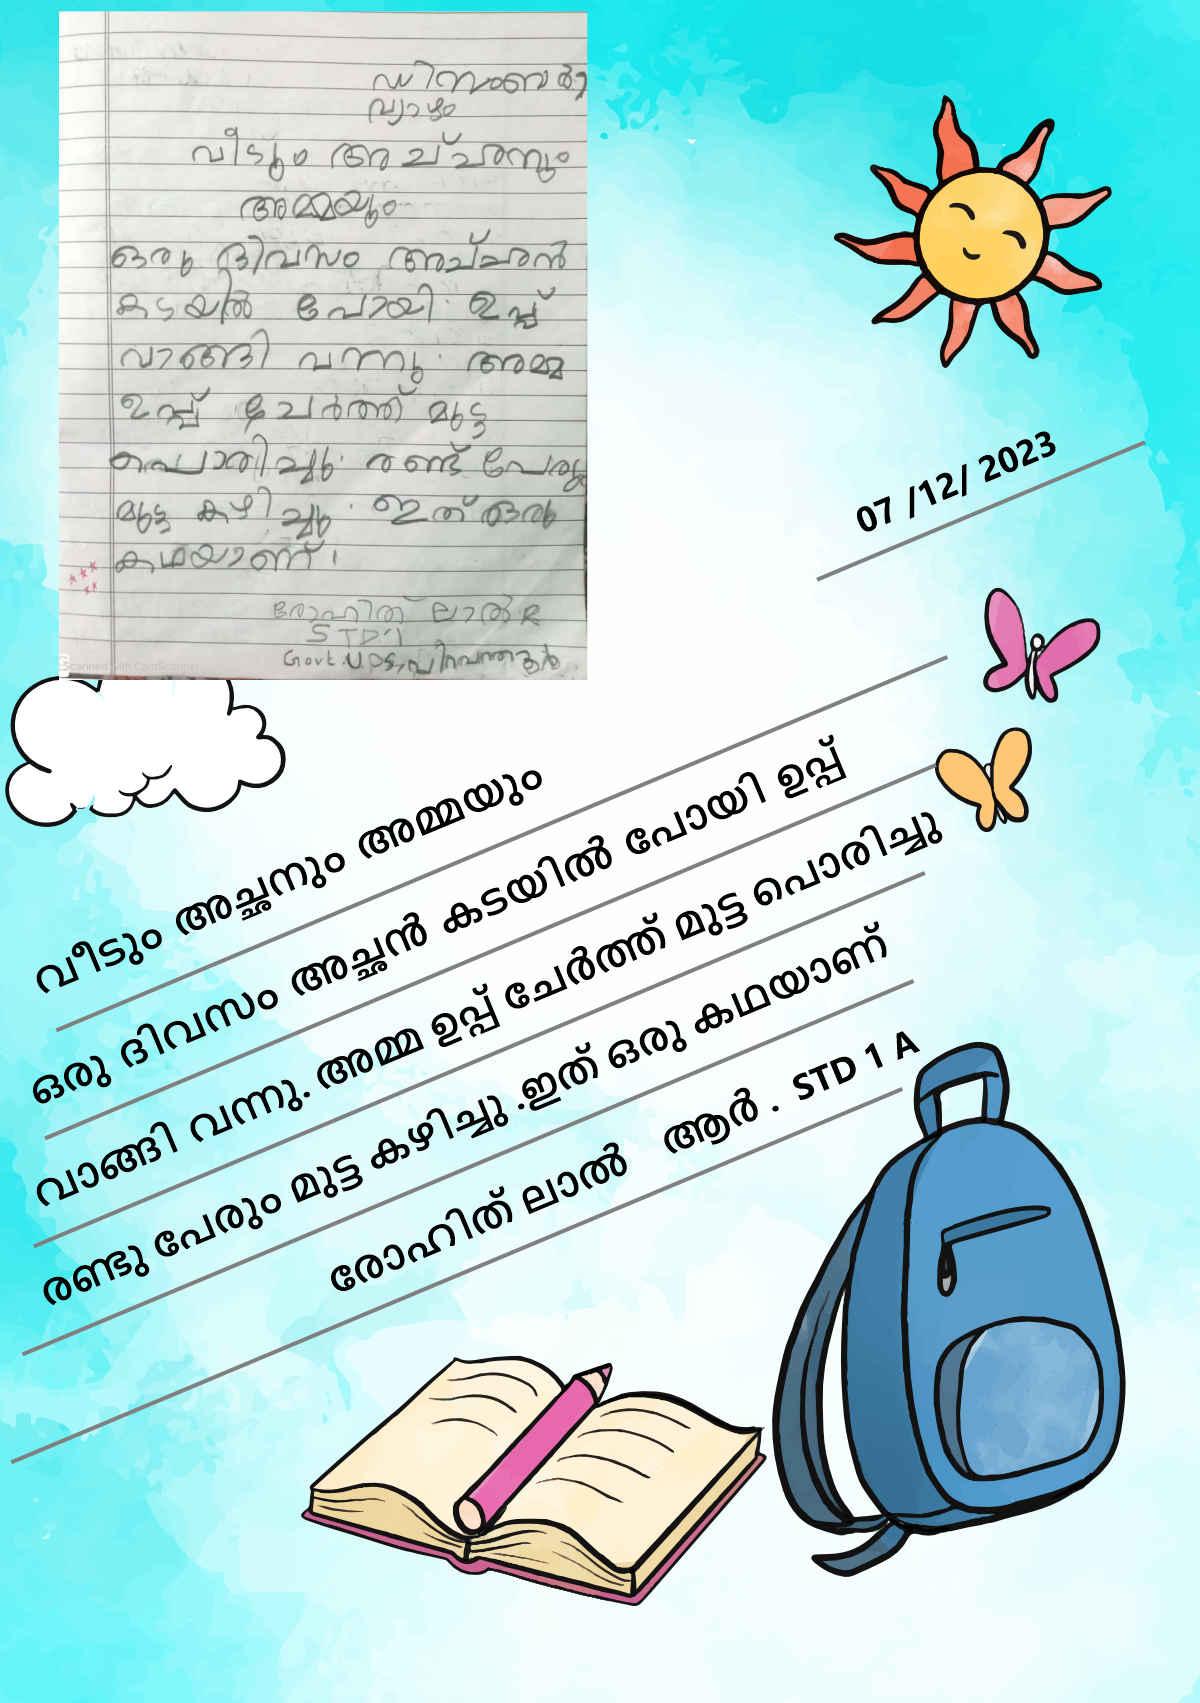 ഡിസംബർ 7
വ്യാഴം
വീടും അച്ചനും
അമ്മയും
ഒരു ദിവസം അച്ചൻ
കടയിൽ പോയി. ഉപ്പ്
വാങ്ങി വന്നു. അമ്മ
ഉപ്പ് ചേർത്ത് മുട്ട
പൊരിച്ചു. രണ്ട് പേരും
മുട്ട കഴിച്ചു. ഇത് ഒരു
കഥയാണ്.
രോഹിത് ലാൽ R
STD 1
Govt. U.P.S,
Scanned with CamScanner
07 /12/ 2023
വീടും അച്ഛനും അമ്മയും
ഒരു ദിവസം അച്ഛൻ കടയിൽ പോയി ഉപ്പ്
വാങ്ങി വന്നു. അമ്മ ഉപ്പ് ചേർത്ത് മുട്ട പൊരിച്ചു
രണ്ടു പേരും മുട്ട കഴിച്ചു .ഇത് ഒരു കഥയാണ്
രോഹിത് ലാൽ ആർ . STD 1 A